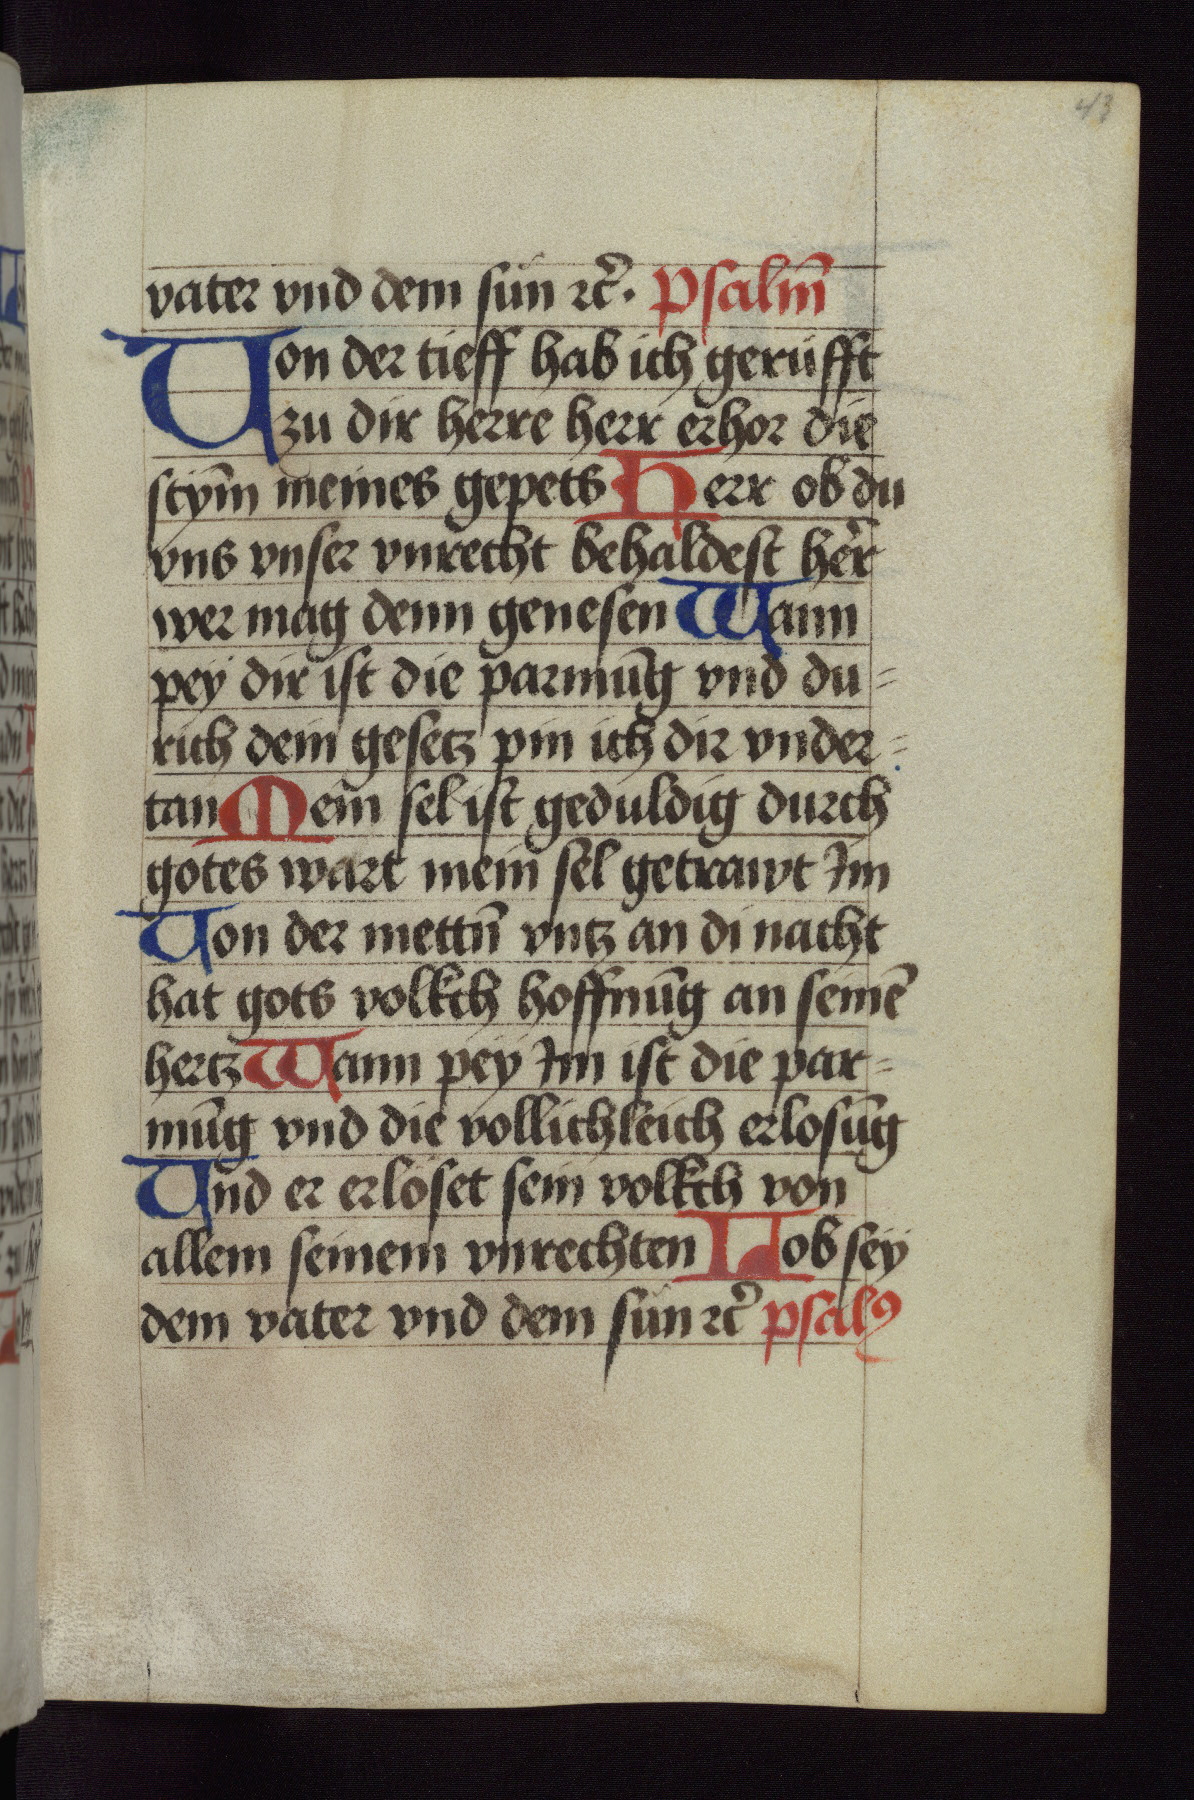 43
vater vnd dem sun ꝛc̄. Psalm̄
Uon der tieff hab ich gerüfft
zu dir herre herr erhor die
stym̄ meines gepets Herr ob du
vns vnser vnrecht behaldest her̄r
wer mag denn genesen Wann
pey dir ist die parmūg vnd du=
rich dein gesetz pin ich dir vnder=
tan Mein sel ist geduldig durch
gotes wart mein sel getrawt Im
Uon der mettn̄ vntz an di nacht
hat gots volkch hoffnūg an seinē
hertz Wann pey Im ist die par=
mūg vnd die vollichleich erlosūg
Und er erloset sein volkch von
allem seinem vnrechten Lob sey
dem vater vnd dem sun ꝛc̄ psalꝰ